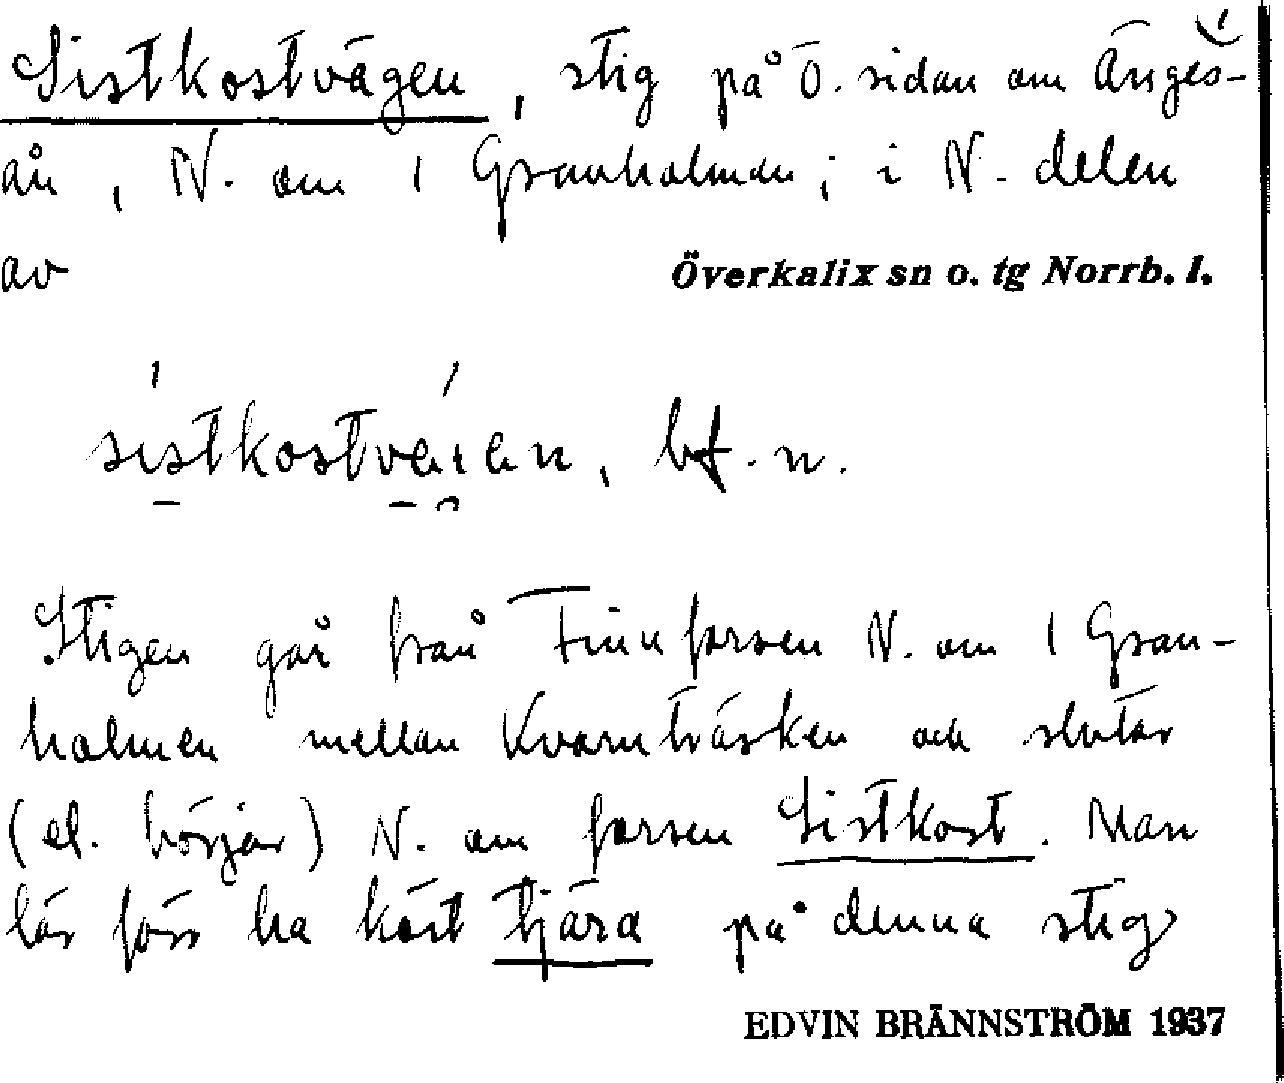 Sistkostvägen, stig på Ö. sidan om Änges-
ån, N. om 1 Granholmen; i N. delen
av Överkalix sn o. tg Norrb. l.
sistkostveien, bf. n.
Stigen går från Finnforsen N. om 1 Gran-
holmen mellan Kvarnträsken och slutar
(el. börjar) N. om forsen Sistkost. Man
lär förr ha kört tjära på denna stig
EDVIN BRÄNNSTRÖM 1937